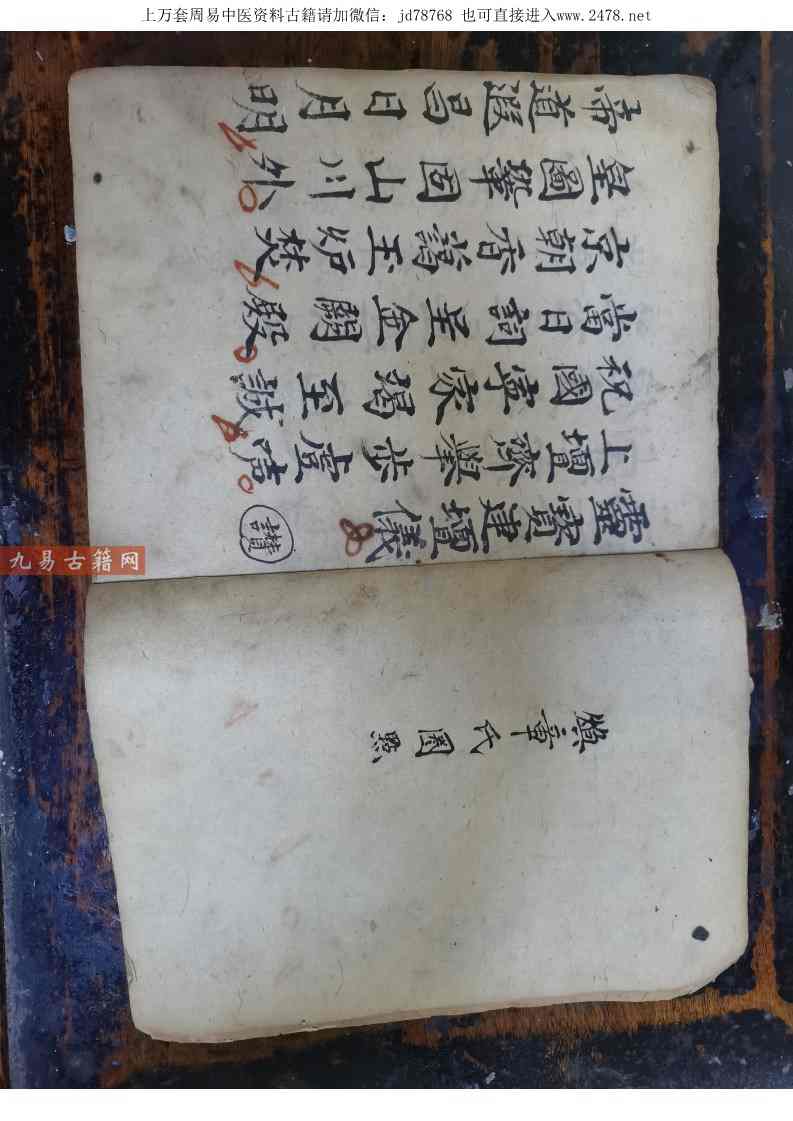 上万套周易中医资料古籍请加微信：jd78768 也可直接进入www.2478.net
煥章氏圈點
靈寶建壇儀
上壇齊舉步虛声
讃
祝國寧家竭至誠
當日詞呈金闕殿
京朝香藹玉炉焚
皇圖鞏固山川外
帝道遐昌日月明
九易古籍网